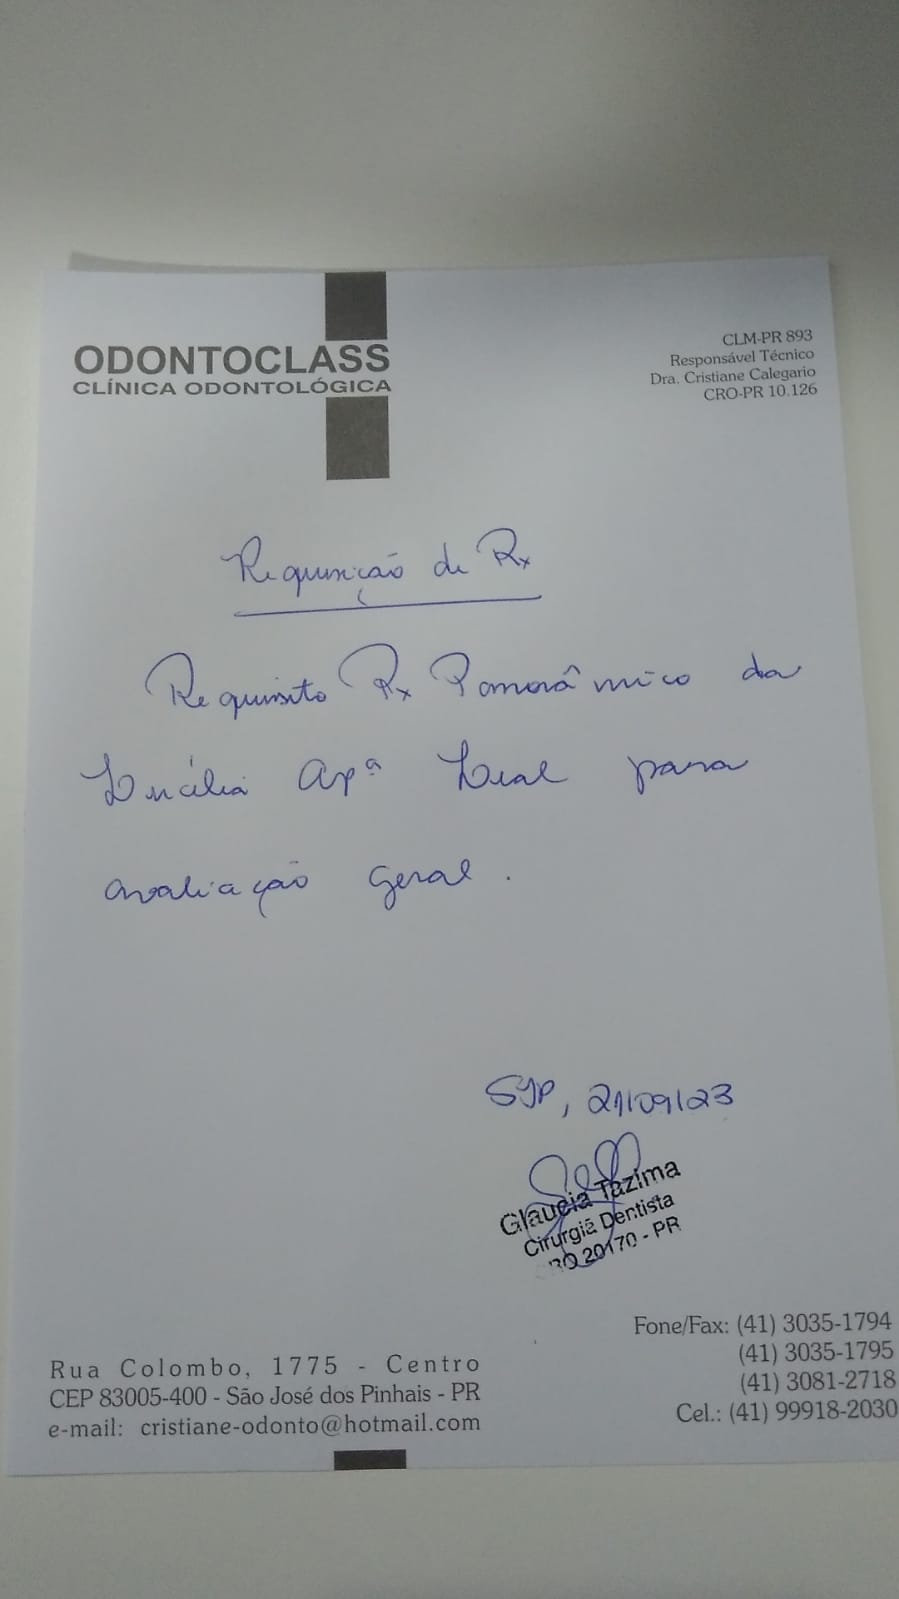 ODONTOCLASS
CLÍNICA ODONTOLÓGICA
CLM-PR 893
Responsável Técnico
Dra. Cristiane Calegario
CRO-PR 10.126
Requisição de Rx
Requisito Rx Panorâmico da
Apª Leal para
avaliação geral.
SJP, 21/09/23
Glaucia Tazima
Cirurgiã Dentista
RO 20170 - PR
Rua Colombo, 1775 - Centro
CEP 83005-400 - São José dos Pinhais - PR
e-mail: cristiane-odonto@hotmail.com
Fone/Fax: (41) 3035-1794
(41) 3035-1795
(41) 3081-2718
Cel.: (41) 99918-2030